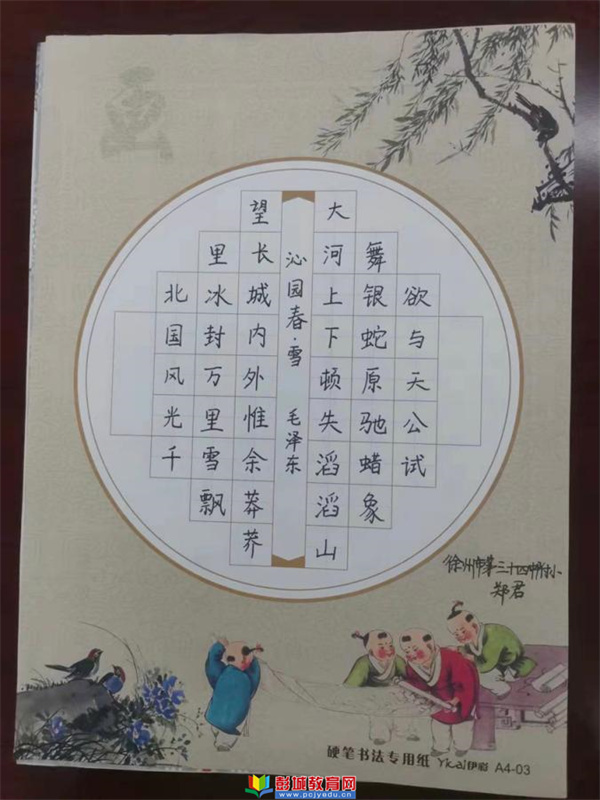 北国风光千
里冰封万里雪飘
望长城内外惟余莽莽
沁园春·雪 毛泽东
大河上下顿失滔滔山
舞银蛇原驰蜡象
欲与天公试
徐州市第三十四中附小
郑君
硬笔书法专用纸 Yicai伊彩 A4-03
彭城教育网
www.pcjyedu.cn